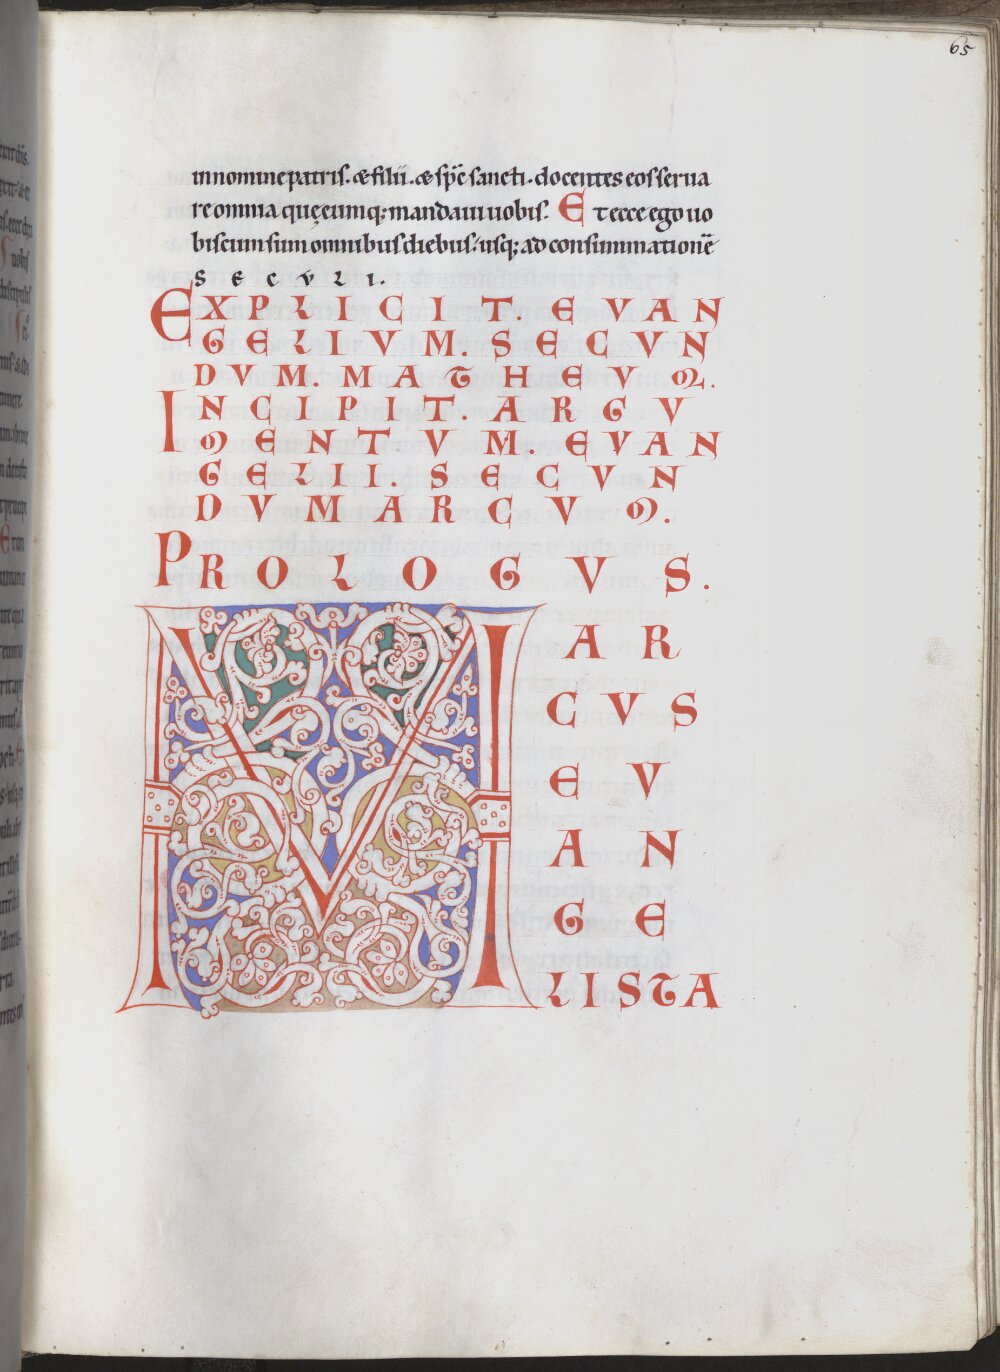 65
in nomine patris. & filii. & sp̄c sancti. docentes eos serua
re omnia quęcumq; mandaui uobis. Et ecce ego uo
biscum sum omnibus diebus usq; ad consummationē
SECVLI.
EXPLICIT. EVAN
GELIVM. SECVN
DVM. MATHEVM.
INCIPIT ARGV
MENTVM EVAN
GELII. SECVN
DVM ARCVM.
PROLOGVS.
MAR
CVS
EV
AN
GE
LISTA